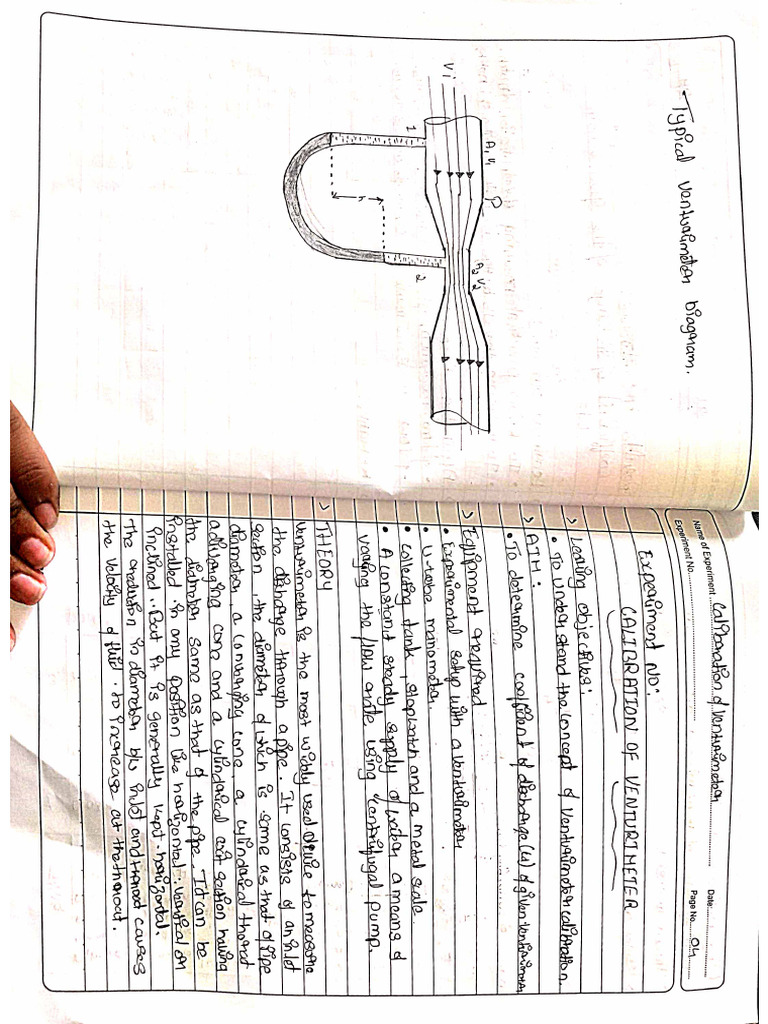 • Typical venturimeter Diagram.
A1 V1
P
A2 V2
V1
1
2
Name of Experiment Calibration of Venturimeter
Date:
Experiment No.
Page No. 04
Experiment NO:
CALIBRATION OF VENTURIMETER
> Learing objectives:
• To under stand the concept of Venturimeter calibration.
> AIM:
• To determine coefficient of discharge (Cd) of given venturimeter
> Equipment required
• Experimental setup with a venturimeter
• U-tube manometer.
• collecting tank, stopwatch and a metal scale.
• A consistent steady supply of water a means of
varying the flow rate using centrifugal pump.
> THEORY
Venturimeter is the most widely used device to measure
the discharge through a pipe. It consists of an inlet
section, the diameter of which is same as that of pipe
diameter, a converging cone, a cylindrical throat
a diverging cone and a cylindrical exit section having
the diameter same as that of the pipe. It can be
installed in any position like horizontal, vertical or
inclined. But it is generally kept horizontal.
The reduction in diameter b/w inlet and throat causes
the velocity of fluid to increase at the throat.